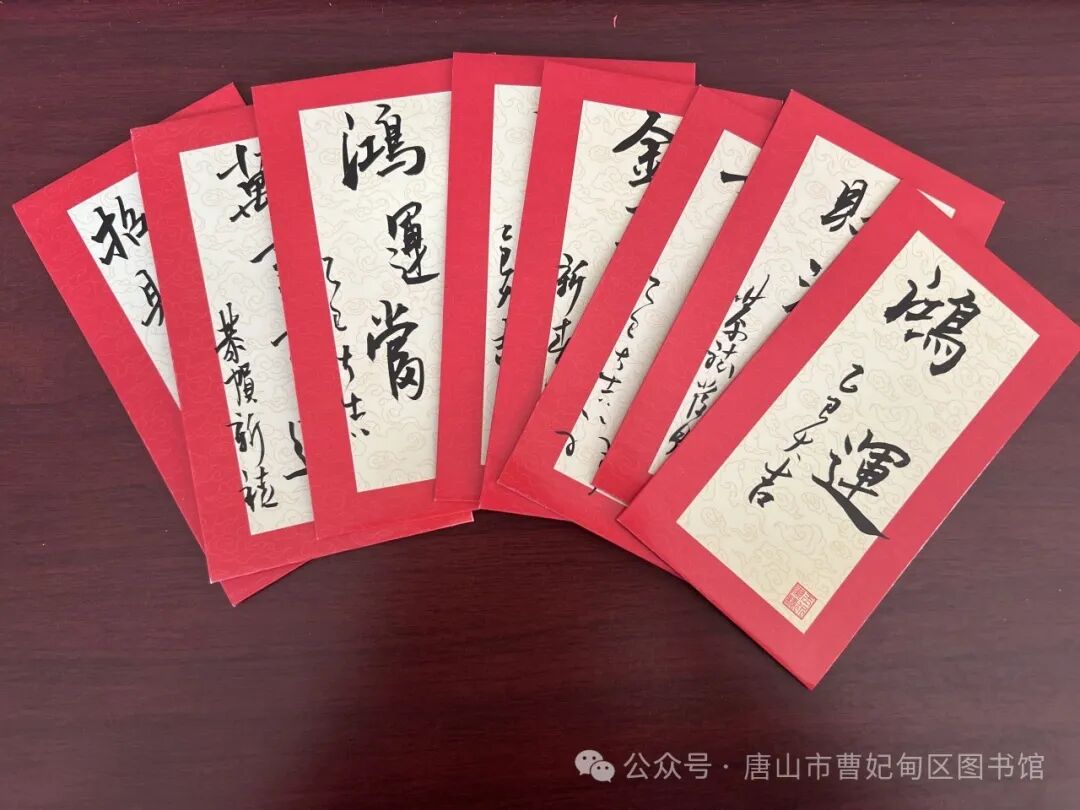 招財
恭賀新禧
鴻運當
乙巳大吉
乙巳大吉
金
新春
乙巳大吉
財源
恭禧發財
鴻運
乙巳大吉
公众号 · 唐山市曹妃甸区图书馆